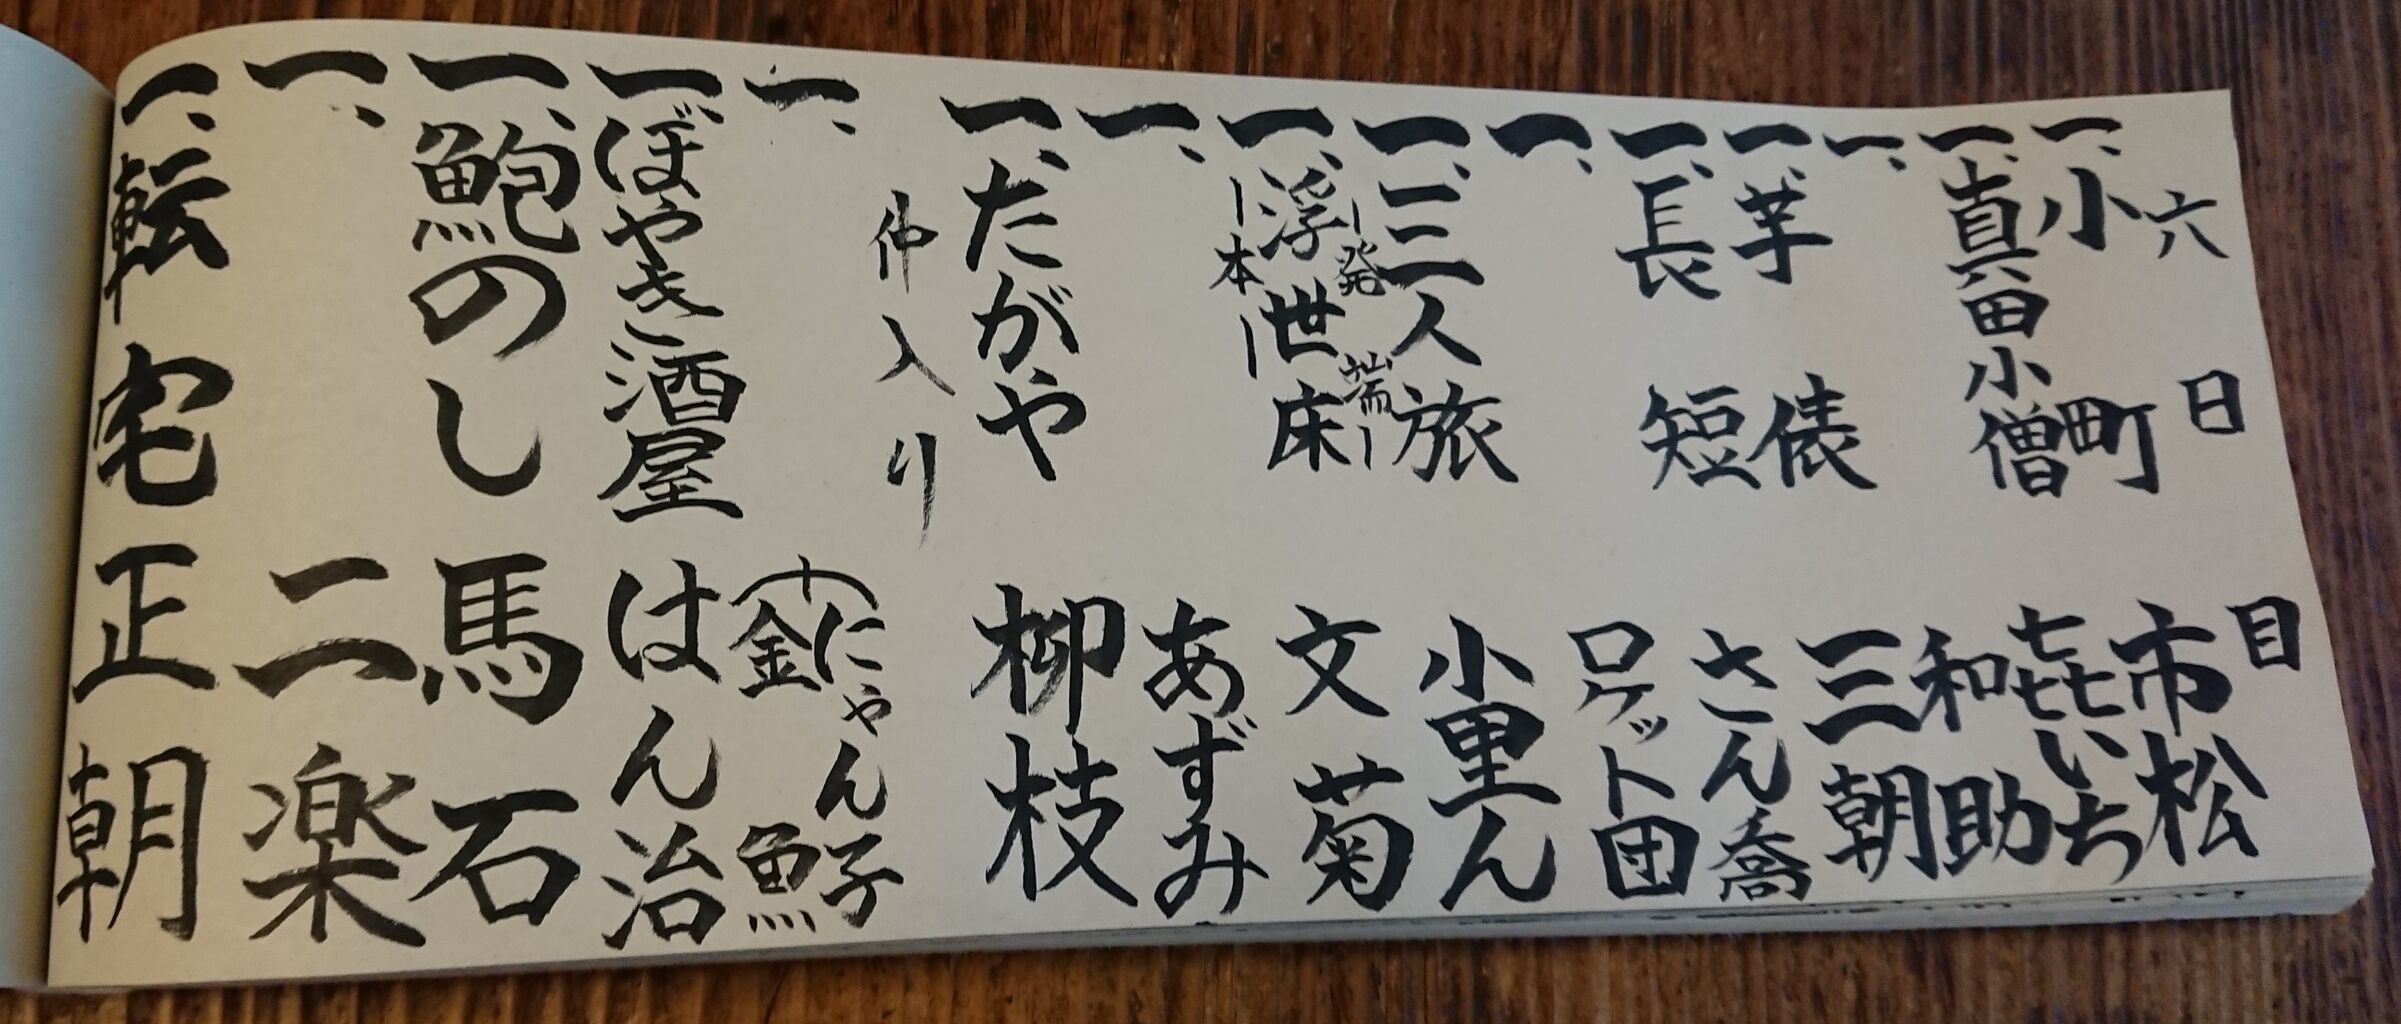 六日目
一、小町 市松
一、真田小僧 㐂いち
一、 和助
一、芋俵 三朝
一、長短 さん喬
一、 ロケット団
一、三人旅 小里ん
ー発端ー
一、浮世床 文菊
ー本ー
一、 あずみ
一、たがや 柳枝
仲入り
一、 にゃん子
金魚
一、ぼやき酒屋 はん治
一、鮑のし 馬石
一、 二楽
一、転宅 正朝